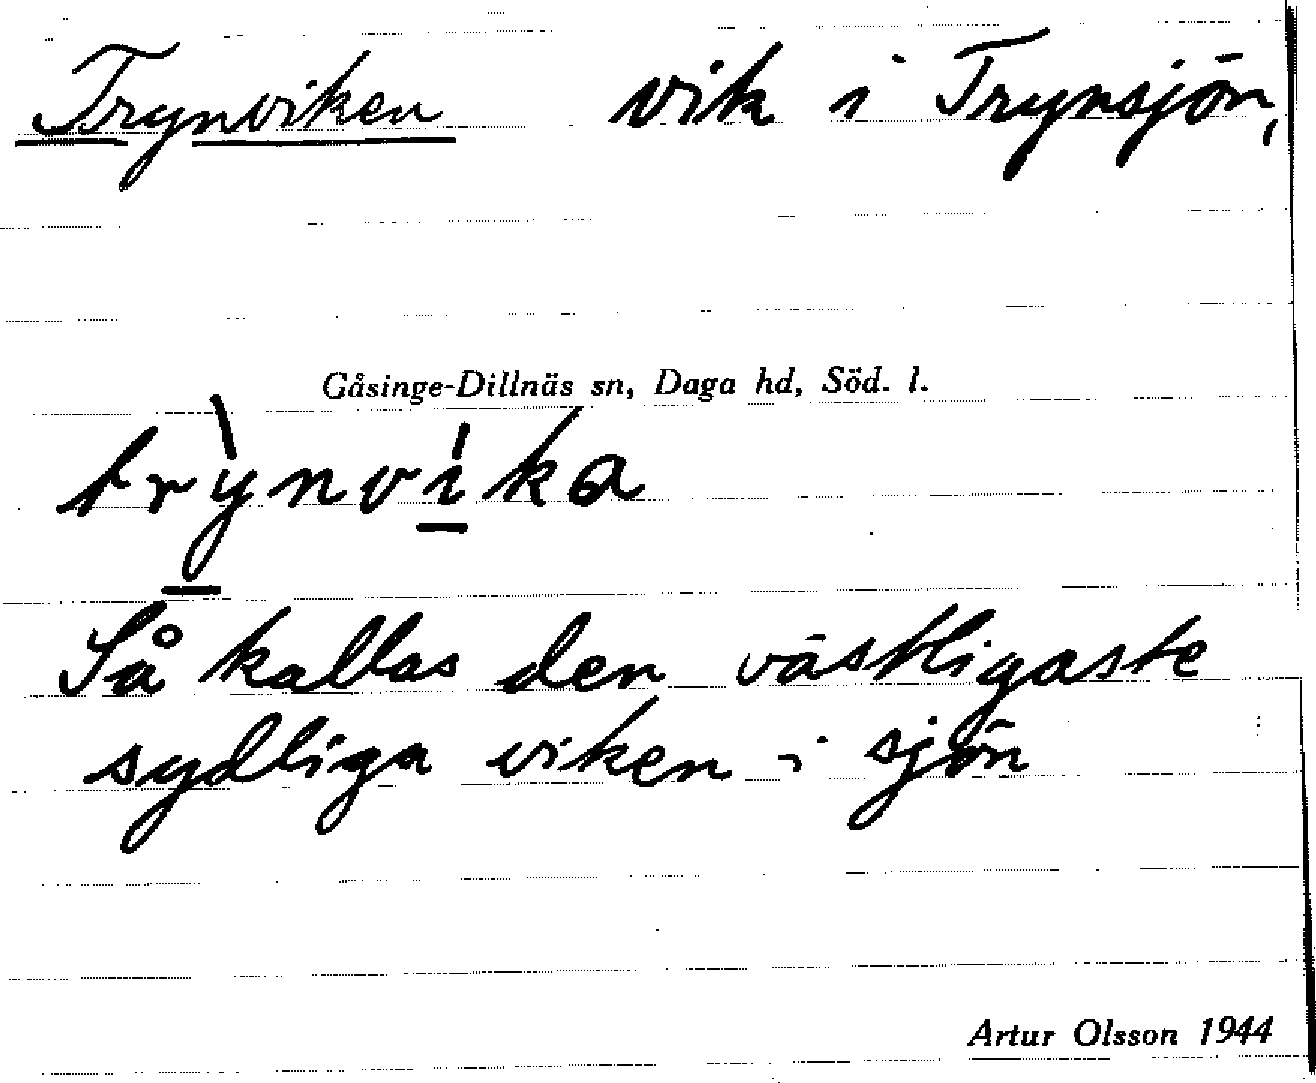 Trynviken vik i Trynsjön,
Gåsinge-Dillnäs sn, Daga hd, Söd. l.
trỳ̱nví̱ka
Så kallas den västligaste
sydliga viken i sjön
Artur Olsson 1944